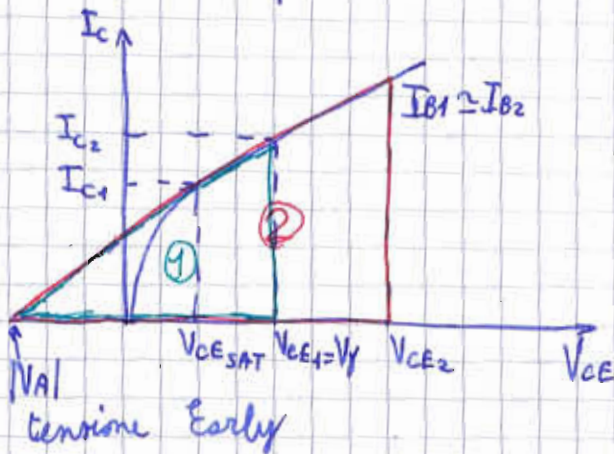 I_C
I_B1 ≃ I_B2
I_C2
I_C1
① ②
V_CE_SAT V_CE1 = V_γ V_CE2 V_CE
|V_A|
tensione Early